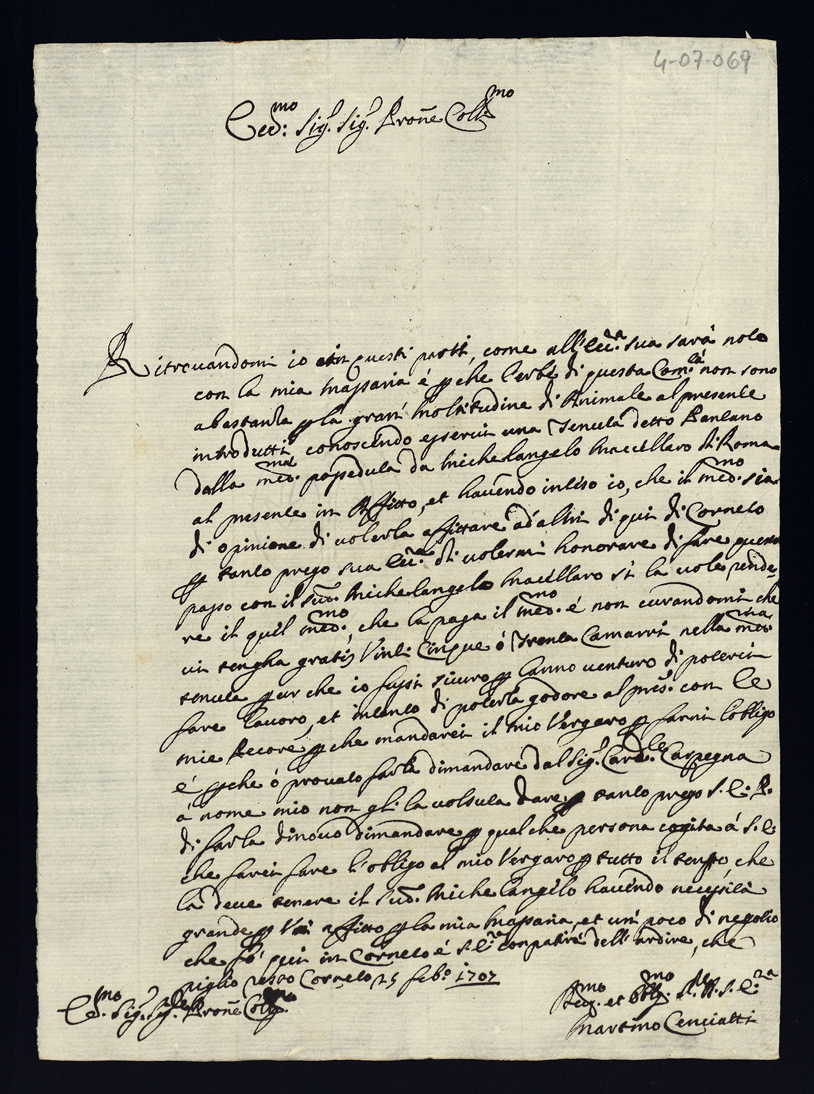 4-07-069
Ecc:mo Sig.r Sig.r Proñe Coll.mo
Ritrouandomi io in questi parti, come all'Ecc.a sua sarà noto
con la mia massaria é p che l'erbe di questa Com.tà non sono
abastanza p la gran moltitudine di Animale al presente
introdutti, conoscendo esserui una Tenuta detto Pantano
dalla med.ma posseduta da Michelangelo Macellaro di Roma
al presente in Affitto, et hauendo inteso io, che il med.mo sia
di opinione di uolerla affittare ad altri di qui di Corneto
p tanto prego sua Ecc.a di uolermi honorare di fare questo
passo con il sud. Michelangelo Macellaro si la uole rende
re il quel med.mo, che la paga il med.mo é non curandomi che
ui tengha gratis Vinti Cinque ó Trenta Camarri nella med.ma
tenuta pur che io fussi siuro p l'anno uenturo di poterui
fare lauoro, et intanto di poterla godore al pres. con le
mie Pecore p che mandarei il mio Vergaro p farni l'obligo
é p che ó prouato farla dimandare dal Sig.r Card.le Carpegna
á nome mio non gli la uolsuta dare p tanto prego S. E. P.
di farla dinouo dimandare p qual che persona cognita á S. E.
che farei fare l'obligo al mio Vergaro p tutto il tempo che
la deue tenere il sud. Michelangelo hauendo necessità
grande p affitto p la mia Massaria, et un poco di negotio
che fò qui in Corneto é S. E. conpatirà dell'ardire, che
piglio resto Corneto 25 feb.o 1707
Ecc.mo Sig.r Sig.r Proñe Coll.mo
et Obblig.mo S. E.
Martino Cenciatti